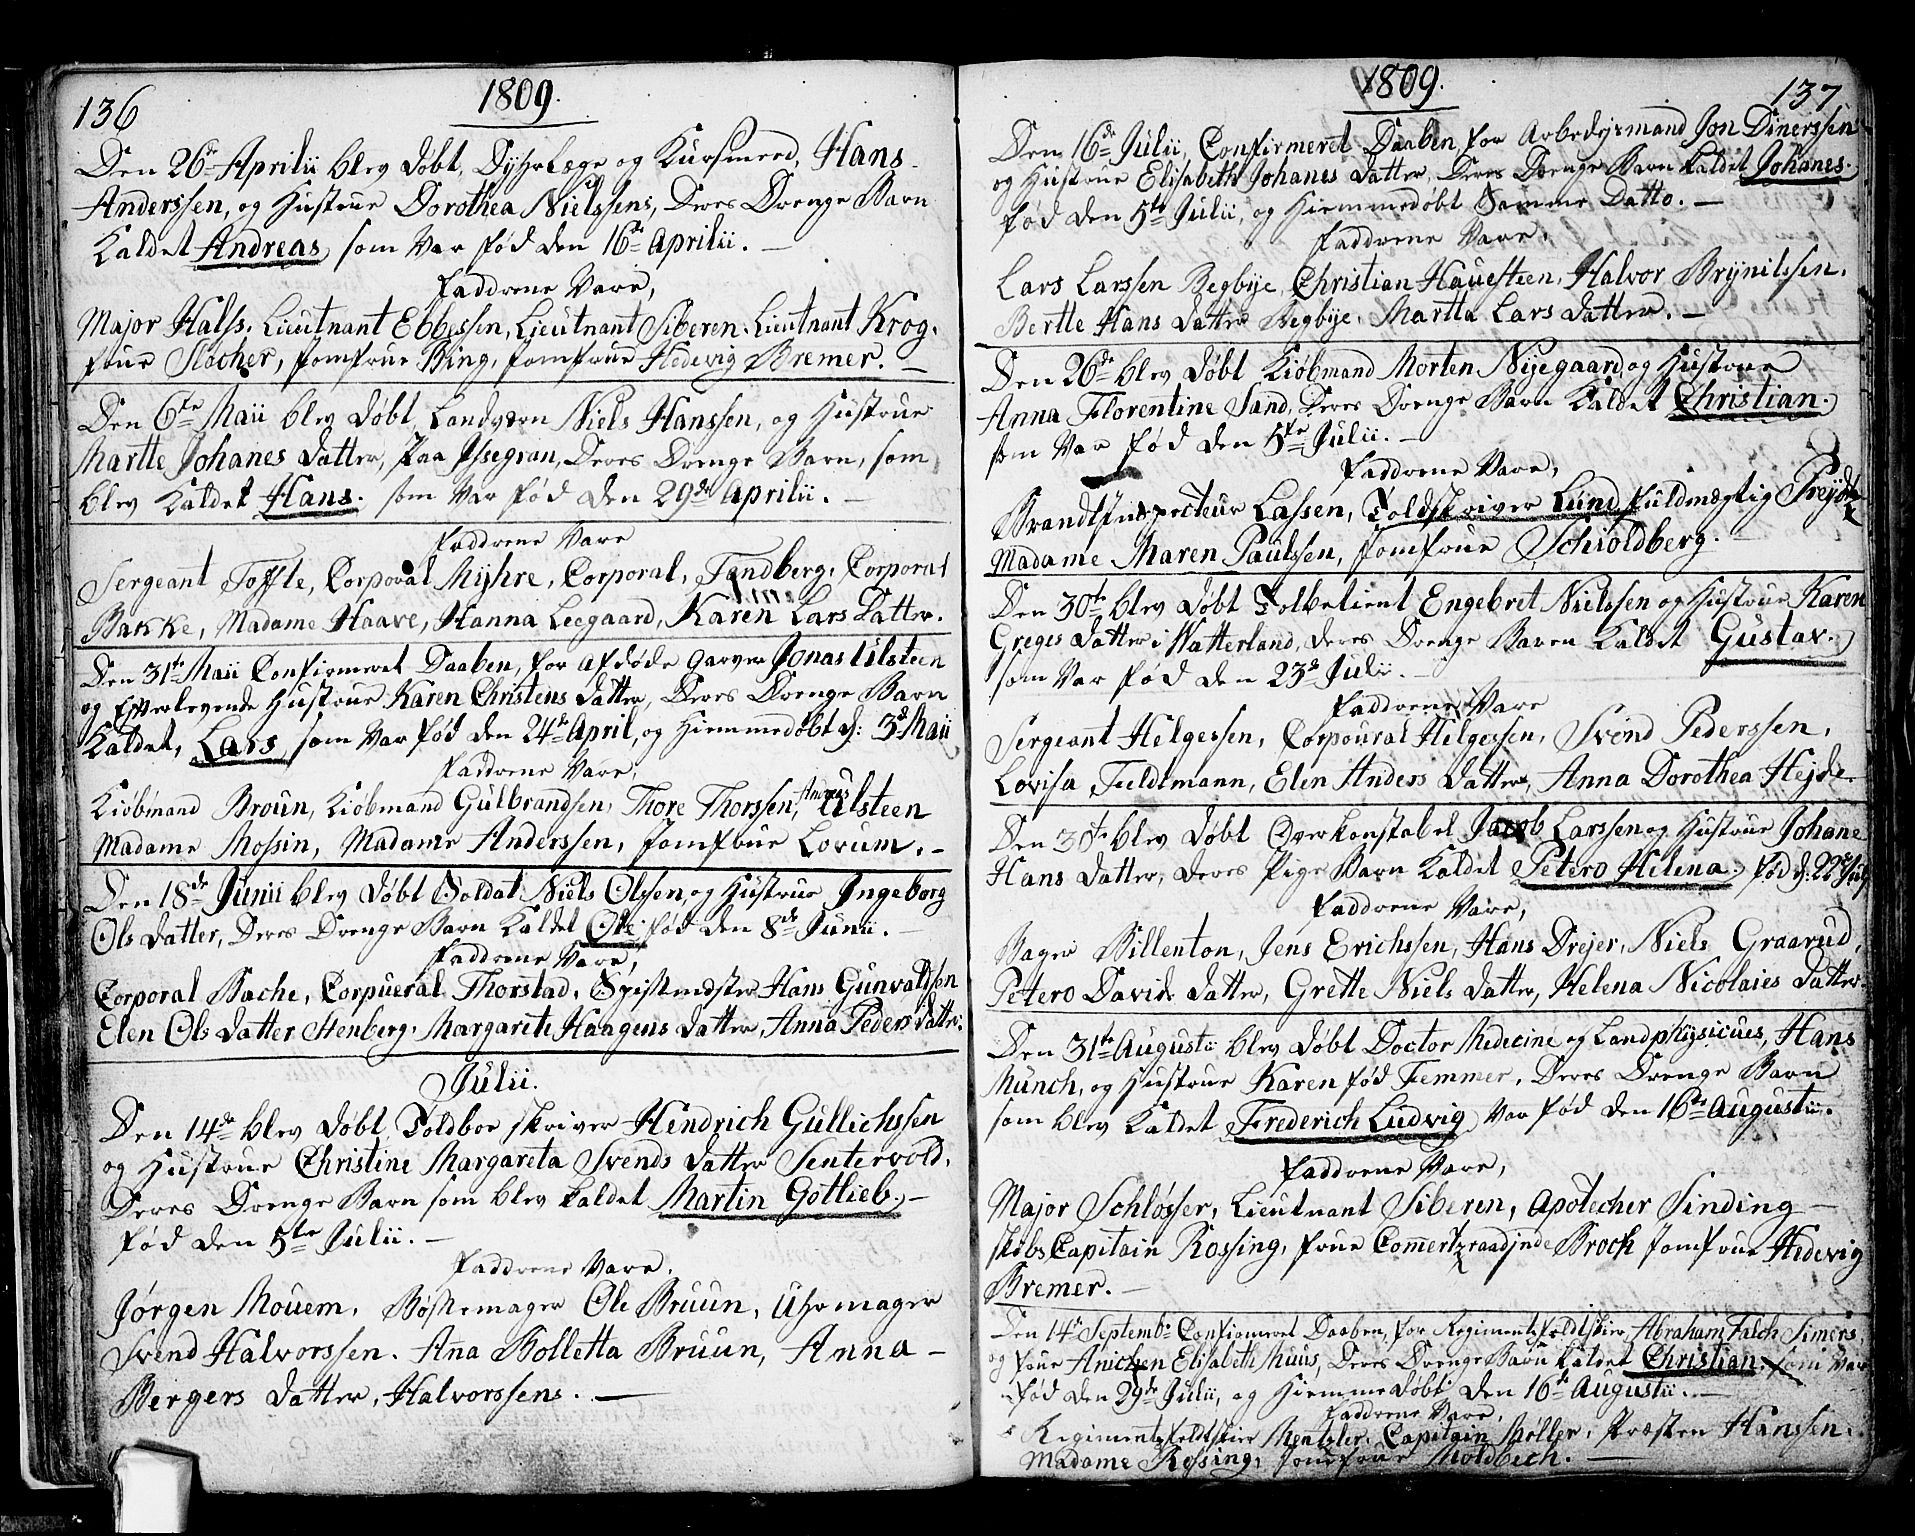 136
1809.
Den 26de Aprilii blev døbt, Dyhrlæge og Kursmeed, Hans
Anderssen, og Hustrue Dorothea Nielssens, Deres Drenge Barn
Kaldet Andreas, som var fød den 16de Aprilii. —
Faddrene Vare,
Major Halss, Lieutnant Ebbessen, Lieutnant Siberen, Lieutnant Krog,
frue Slocher, Jomfrue Bing, Jomfrue Hedevig Bremer. —
Den 6te Maii blev døbt, Landværn Niels Hanssen, og Hustrue
Martte Johanes datter, paa Issegran, Deres Drenge Barn, som
blev Kaldet Hans. som var fød den 29de Aprilii. —
Faddrene Vare
Sergeant Toffte, Corporal Myhre, Corporal, Tandberg, Corporal
Bakke, Madame Haave, Hanna Leegaard, Karen Lars Datter.
Den 31te Maii Confirmeret Daaben, for afdøde garver Jonas Ulsteen
og Efterlevende Hustrue Karen Christens datter, Deres Drenge Barn
Kaldet, Lars, som var fød den 24de April, og Hiemmedøbt d: 3d Maii
Faddrene Vare,
Kiøbmand Broun, Kiøbmand Gulbrandsen, Thore Thorssen, Andreas Ulsteen
Madame Mossin, Madame Anderssen, Jomfrue Lorum. —
Den 18de Junii blev døbt Soldat Niels Olssen, og Hustrue Ingeborg
Ols datter, Deres Drenge Barn Kaldet Ole, fød den 8de Junii. —
Faddrene Vare,
Corporal Bache, Corpueral Thorstad, Spisemester Hans Gunvaldsen
Elen Ols datter Stenberg, Margarete Haagens datter, Anna Peders datter.
Julii.
Den 14de blev døbt, Toldboe skriver Hindrich Gullichssen
og Hustrue Christine Margareta Svends datter Sentervold,
Deres Drenge Barn som blev kaldet Martin Gotlieb. —
fød den 5te Julii. —
Faddrene Vare,
Jørgen Mouem, Bøssemager Ole Bruun, Uhrmager
Svend Halvorssen. Ana Bolletta Bruun, Anna —
Bergers datter, Halvorssens. —
1809.
137
Den 16de Julii, Confirmeret Daaben for Arbedsmand Jon Dinerssen
og Hustrue Elisabeth Johanes datter, Deres Drenge Barn kaldet Johanes.
fød den 5te Julii, og Hiemmedøbt Samme Datto. —
Faddrene Vare,
Lars Larssen Begbye, Christian Hauesteen, Halvor Brynilssen,
Bertte Hans datter Begbye, Martta Lars datter. —
Den 26de blev døbt Kiøbmand Morten Nyegaard, og Hustrue
Anna Florentine Sand, Deres Drenge Barn Kaldet Christian.
som Var fød den 5te Julii. —
Faddrene Vare,
Brandtinspecteur Lassen, Toldskriver Lund, fuldmægtig
Madame Maren Paulssen, Jomfrue Schioldberg. —
Den 30te blev døbt Tolbetient Engebret Nielssen og Hustrue Karen
Greges datter i Watterland, Deres Drenge Baren Kaldet Gustav.
som Var fød den 23de Julii. —
Faddrene Vare
Sergeant Helgessen, Corpoural Helgessen, Svend Pederssen,
Lovisa Feldtmann, Elen Anders datter, Anna Dorothea Hejde.
Den 30te blev døbt Overkonstabel Jacob Larssen og Hustrue Johane
Hans datter, Deres Pige Barn Kaldet Petero Helena. fød d: 22de July
Faddrene Vare,
Bager Billenton, Jens Erichssen, Hans Drejer, Niels Graarud,
Petero Davids datter, Grette Niels datter, Helena Nicolaies datter.
Den 31te Augustii blev døbt Doctor Medecine og Landphysicues, Hans
Munch, og Hustrue Karen fød Femmer, Deres Drenge Barn
som blev Kaldet Frederich Ludvig, Var fød den 16de Augustii.
Faddrene Vare,
Major Schløsser, Lieutnant Siberen, Apotecher Sinding —
skibs Capitain Rossing, frue Comertzraadinde Broch Jomfrue Hedevig
Bremer. —
Den 14de Septembr Confirmeret Daaben, for Regimentsfeldtskier Abraham Falch Simers,
og frue Anichen Elisabeth Muus, Deres Drenge Barn Kaldet Christian. som Var
fød den 29de Julii, og Hiemmedøbt, den 16de Augustii. —
Faddrene Vare,
Regimentzfeldtskier Mentzler, Capitain Møller, Præsten Hanssen,
Madame Rossing, Jomfrue Moldbech. —